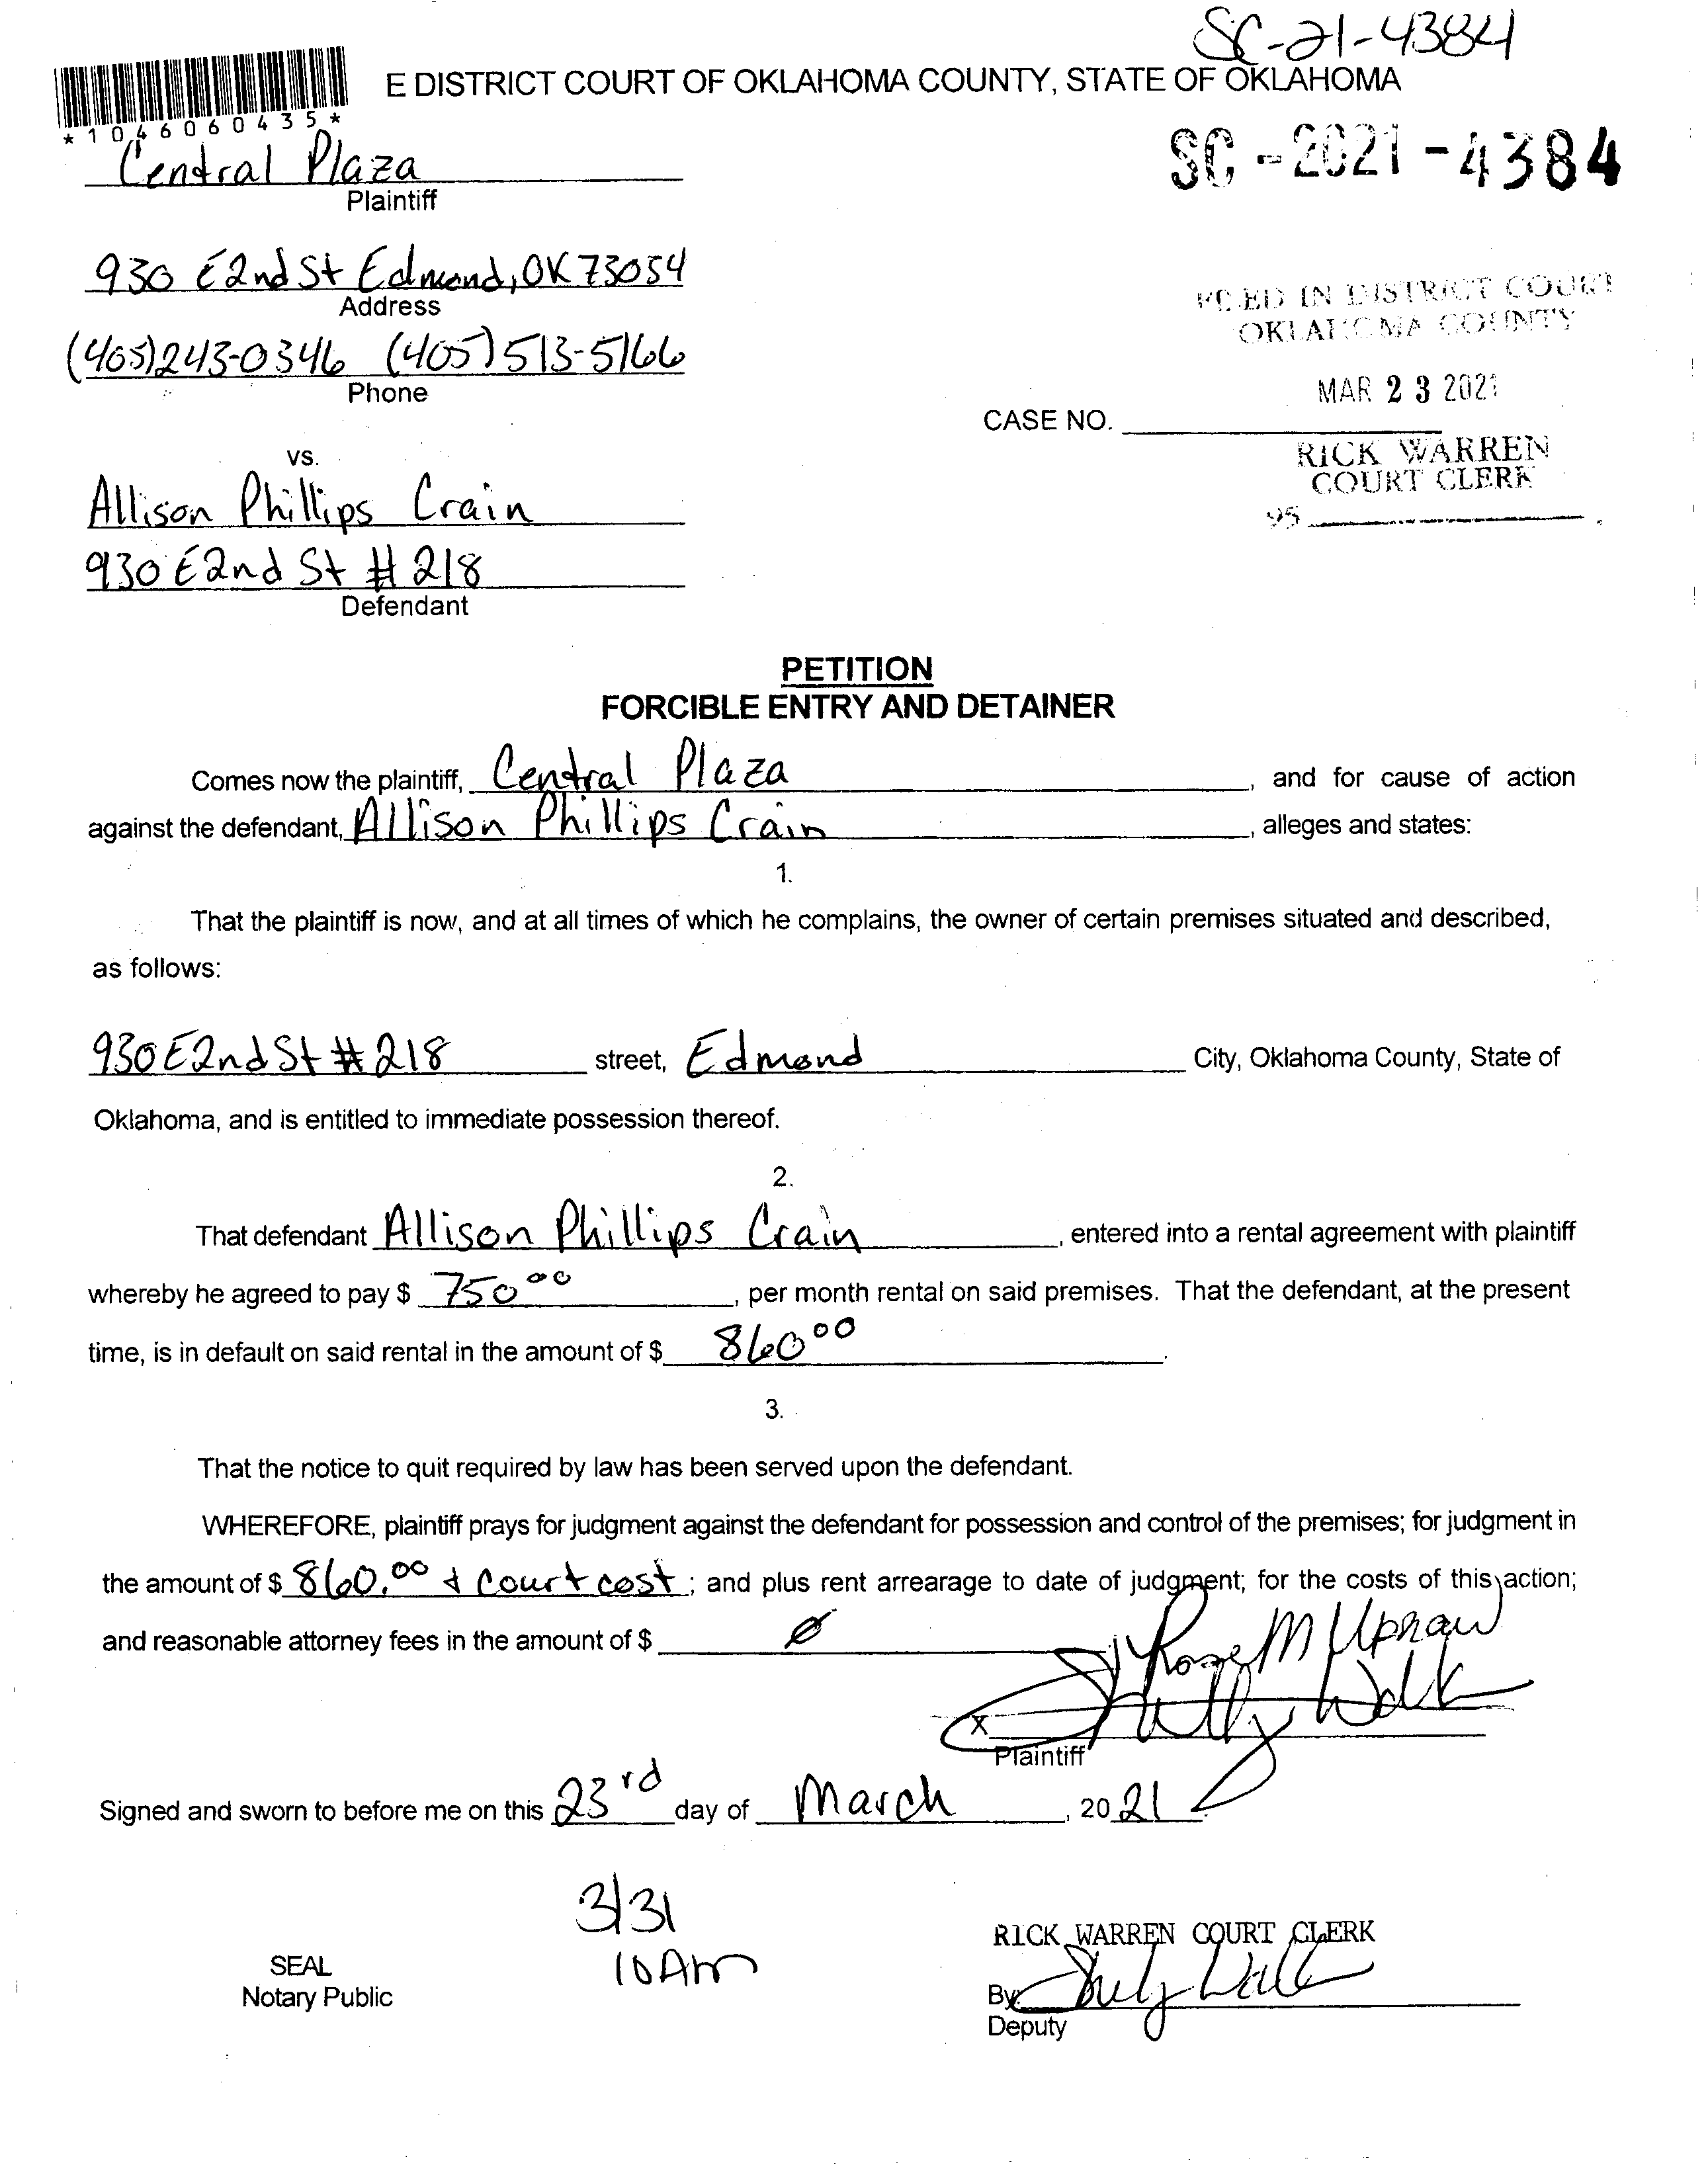 SC-21-4384
E DISTRICT COURT OF OKLAHOMA COUNTY, STATE OF OKLAHOMA
*1046060435*
SC-2021-4384
Central Plaza
Plaintiff
930 E 2nd St Edmond, OK 73054
Address
FILED IN DISTRICT COURT
OKLAHOMA COUNTY
(405)243-0346 (405)513-5166
Phone
MAR 23 2021
CASE NO.
RICK WARREN
COURT CLERK
95
vs.
Allison Phillips Crain
930 E 2nd St #218
Defendant
PETITION
FORCIBLE ENTRY AND DETAINER
Comes now the plaintiff, Central Plaza, and for cause of action
against the defendant, Allison Phillips Crain, alleges and states:
1.
That the plaintiff is now, and at all times of which he complains, the owner of certain premises situated and described,
as follows:
930 E 2nd St #218 street, Edmond City, Oklahoma County, State of
Oklahoma, and is entitled to immediate possession thereof.
2.
That defendant Allison Phillips Crain, entered into a rental agreement with plaintiff
whereby he agreed to pay $ 750 00, per month rental on said premises. That the defendant, at the present
time, is in default on said rental in the amount of $ 860 00.
3.
That the notice to quit required by law has been served upon the defendant.
WHEREFORE, plaintiff prays for judgment against the defendant for possession and control of the premises; for judgment in
the amount of $ 860.00 + court cost; and plus rent arrearage to date of judgment; for the costs of this action;
and reasonable attorney fees in the amount of $ Ø
Rose M Upshaw
X
Plaintiff
Signed and sworn to before me on this 23rd day of March, 2021.
3/31
10 Am
SEAL
Notary Public
RICK WARREN COURT CLERK
By:
Deputy